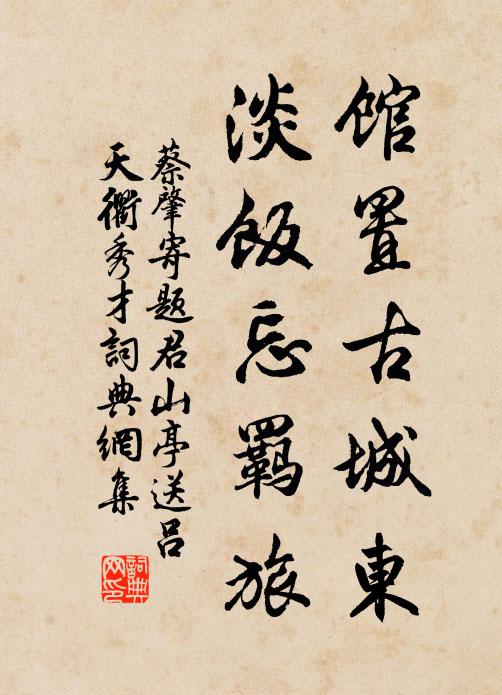 馆置古城東
淡飯忘羈旅
蔡肇寄题君山亭送吕
天衢秀才詞典網集
詞典网印